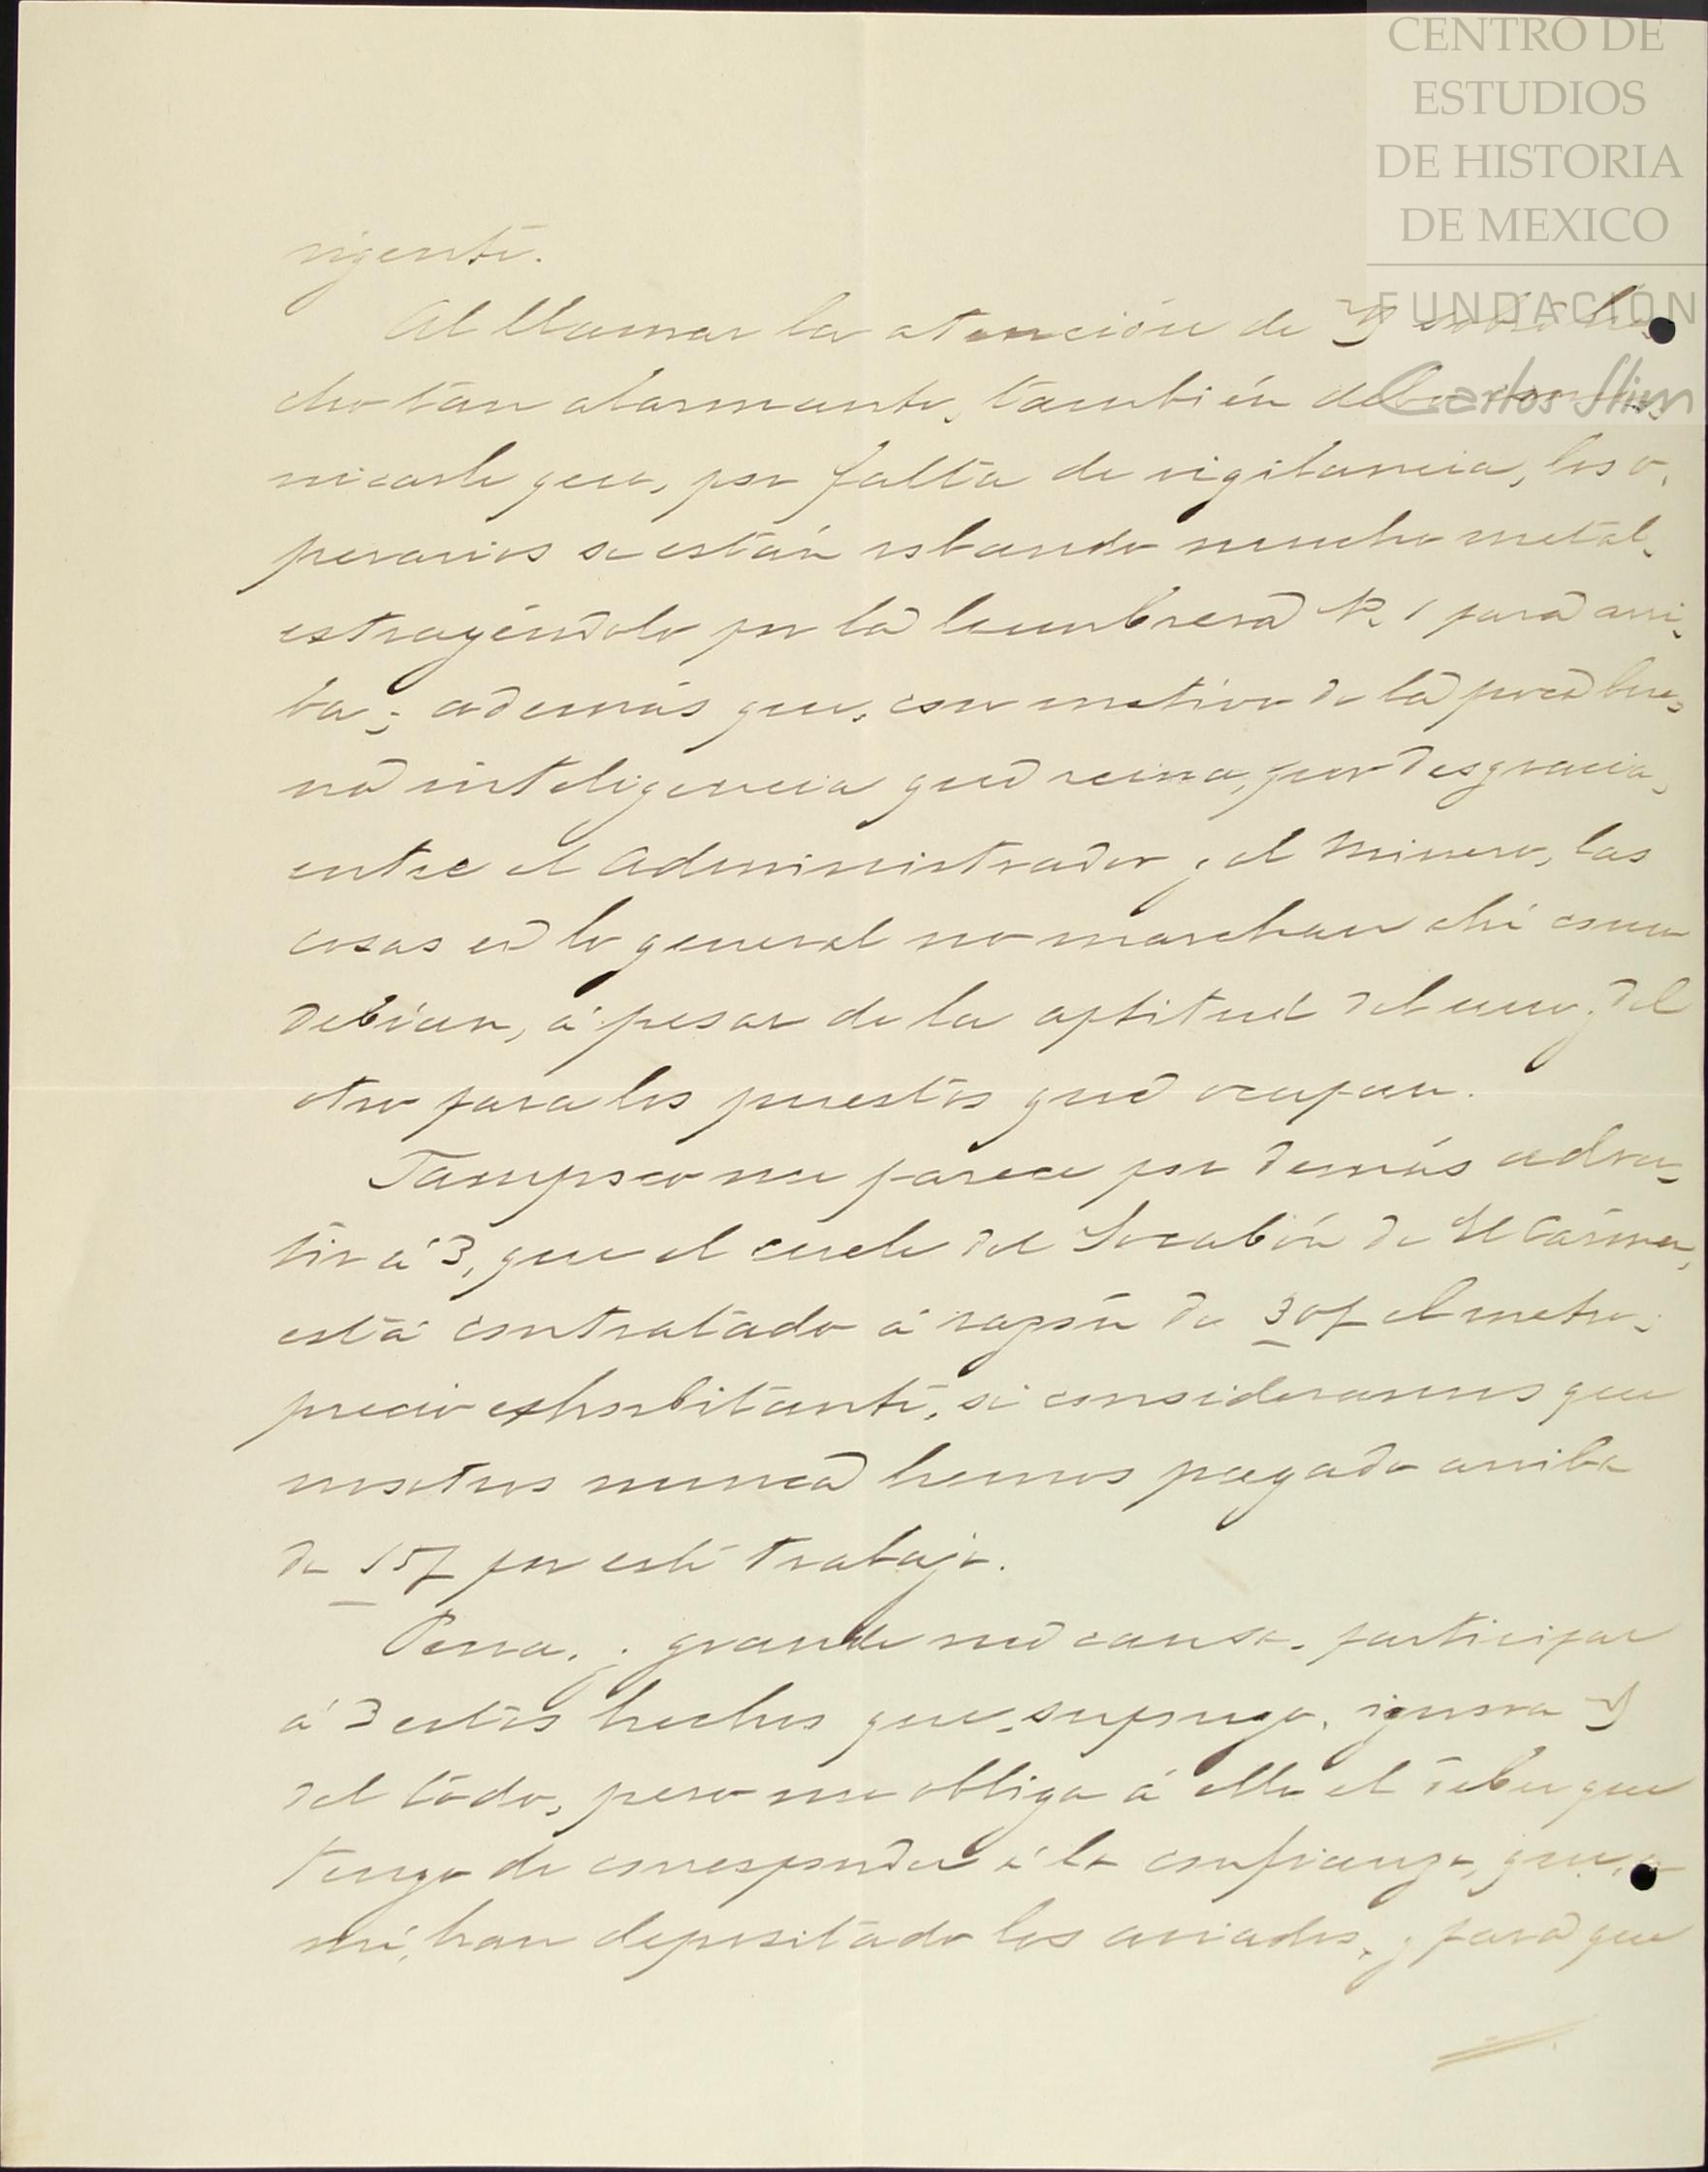 CENTRO DE
ESTUDIOS
DE HISTORIA
DE MEXICO
FUNDACIÓN
Carlos Slim
vigente.
Al llamar la atención de V sobre he
cho tan alarmante, también debo comu-
nicarle que, por falta de vigilancia, los o-
perarios se están robando mucho metal,
estrayéndolo por la lumbrera Nº 1 para arri-
ba; además que, con motivo de la poca bue-
na inteligencia que reina, por desgracia,
entre el Administrador y el Minero, las
cosas en lo general no marchan ahí como
debían, á pesar de la aptitud del uno y del
otro para los puestos que ocupan.
Tampoco me parece por demás adver-
tir á V, que el cuele del Socabón de El Cármen,
está contratado á razón de 30$ el metro;
precio exhorbitante, si consideramos que
nosotros nunca hemos pagado arriba
de 15$ por este trabajo.
Pena, y grande me causa, participar
á V estos hechos que, supongo, ignora V
del todo, pero me obliga á ello el deber que
tengo de corresponder á la confianza, que,
mí, han depositado los aviados, y para que